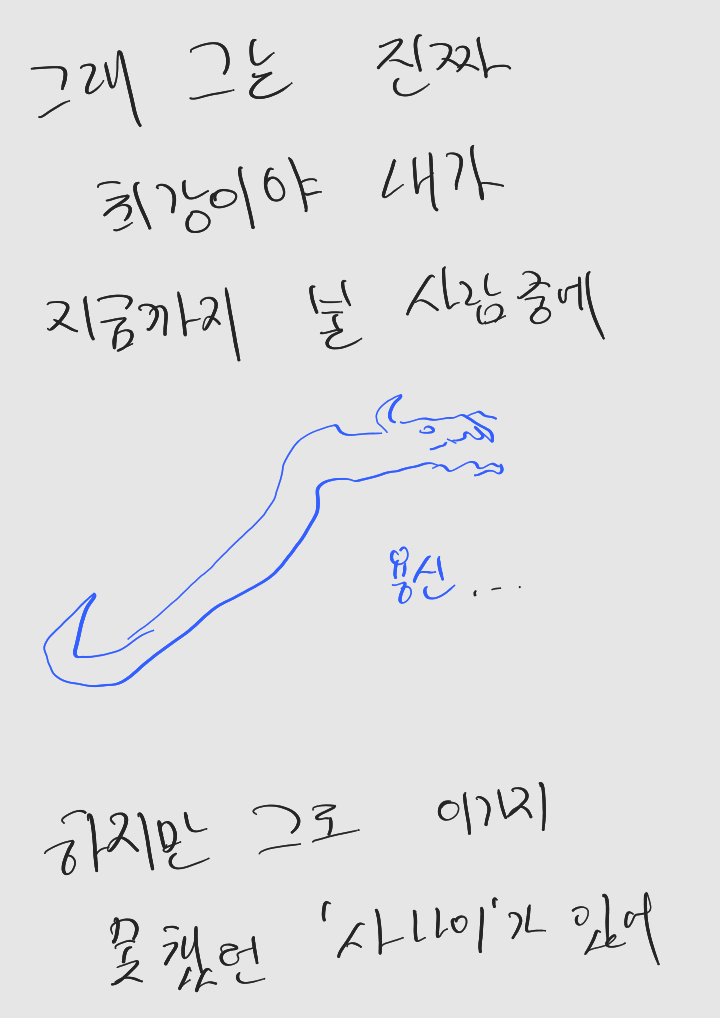 그래 그는 진짜
최강이야 내가
지금까지 본 사람중에
용신...
하지만 그도 이기지
못했던 '사나이'가 있어